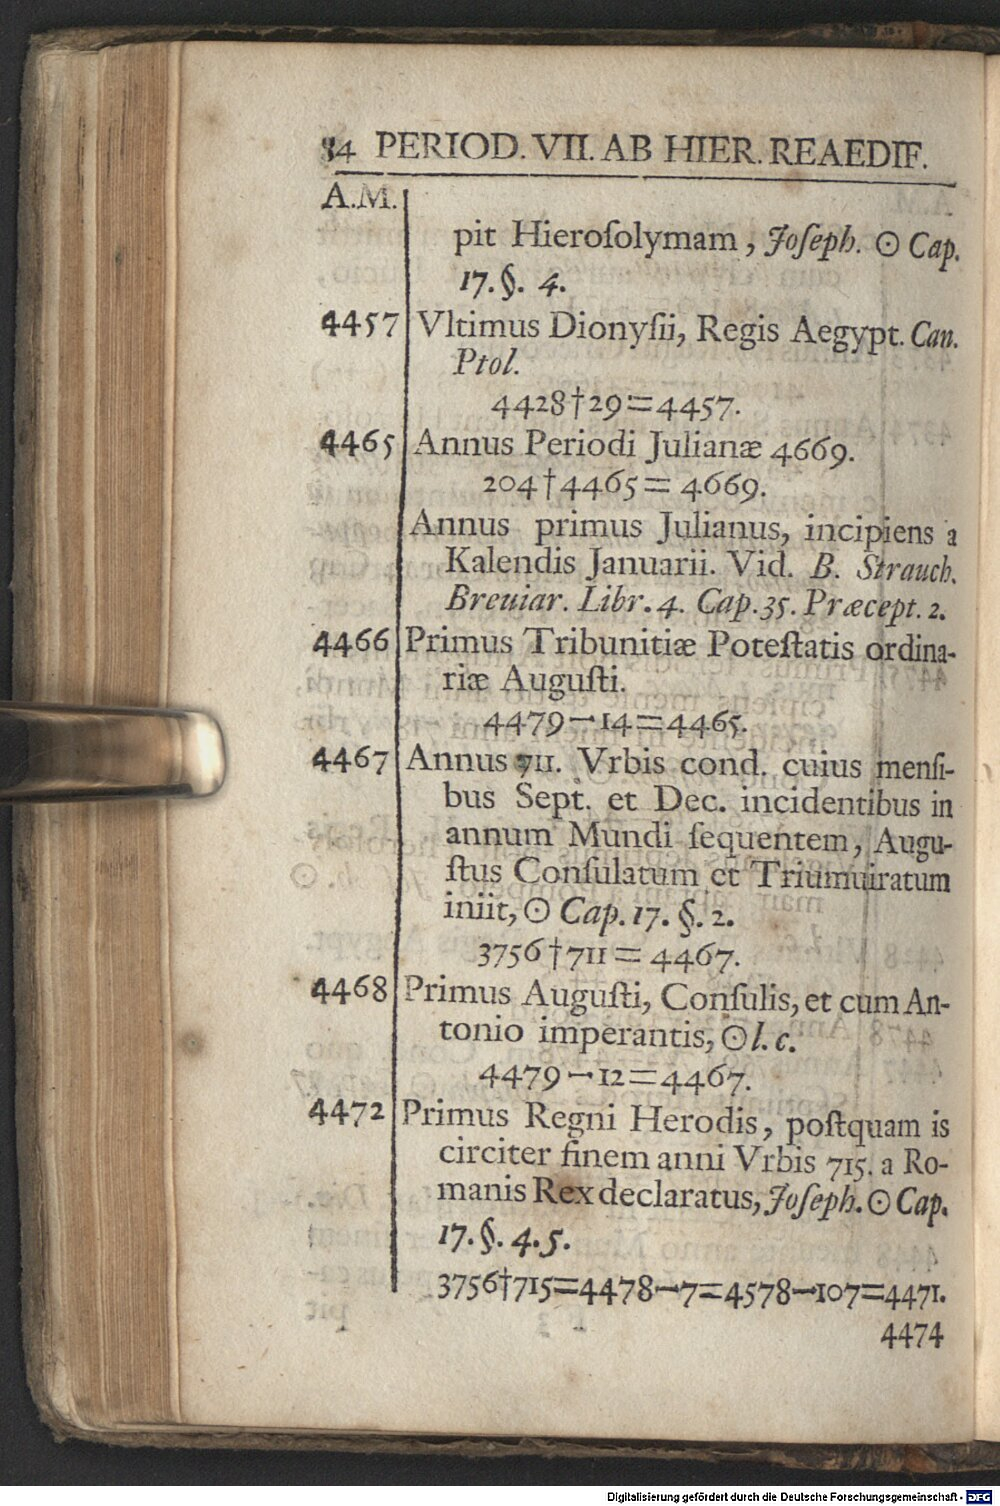 84 PERIOD. VII. AB HIER. REAEDIF.
A.M.
pit Hieroſolymam, Joſeph. ☉ Cap.
17. §. 4.
4457 Vltimus Dionyſii, Regis Aegypt. Can.
Ptol.
4428†29=4457.
4465 Annus Periodi Julianæ 4669.
204†4465=4669.
Annus primus Julianus, incipiens a
Kalendis Januarii. Vid. B. Strauch.
Breuiar. Libr. 4. Cap. 35. Præcept. 2.
4466 Primus Tribunitiæ Poteſtatis ordina-
riæ Auguſti.
4479−14=4465.
4467 Annus 711. Vrbis cond. cuius menſi-
bus Sept. et Dec. incidentibus in
annum Mundi ſequentem, Augu-
ſtus Conſulatum et Triumuiratum
iniit, ☉ Cap. 17. §. 2.
3756†711=4467.
4468 Primus Auguſti, Conſulis, et cum An-
tonio imperantis, ☉ l. c.
4479−12=4467.
4472 Primus Regni Herodis, poſtquam is
circiter finem anni Vrbis 715. a Ro-
manis Rex declaratus, Joſeph. ☉ Cap.
17. §. 4. 5.
3756†715=4478−7=4578−107=4471.
4474
Digitalisierung gefördert durch die Deutsche Forschungsgemeinschaft - DFG